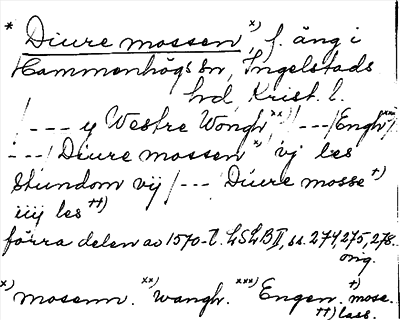 * Diure mossen x), f. äng i
Hammenhögs sn, Ingelstads
hd, Krist. l.
/--- y Westre Wongh xx) /---/ Engh xxx)/
---/ Diure mossen x) vj les
stundom vij /--- Diure mosse †)
iiij les ††)
förra delen av 1570-t. LSLB II, ss. 274, 275, 278.
orig.
x) mosenn. xx) wangh. xxx) Engen. †) mose.
††) lass.